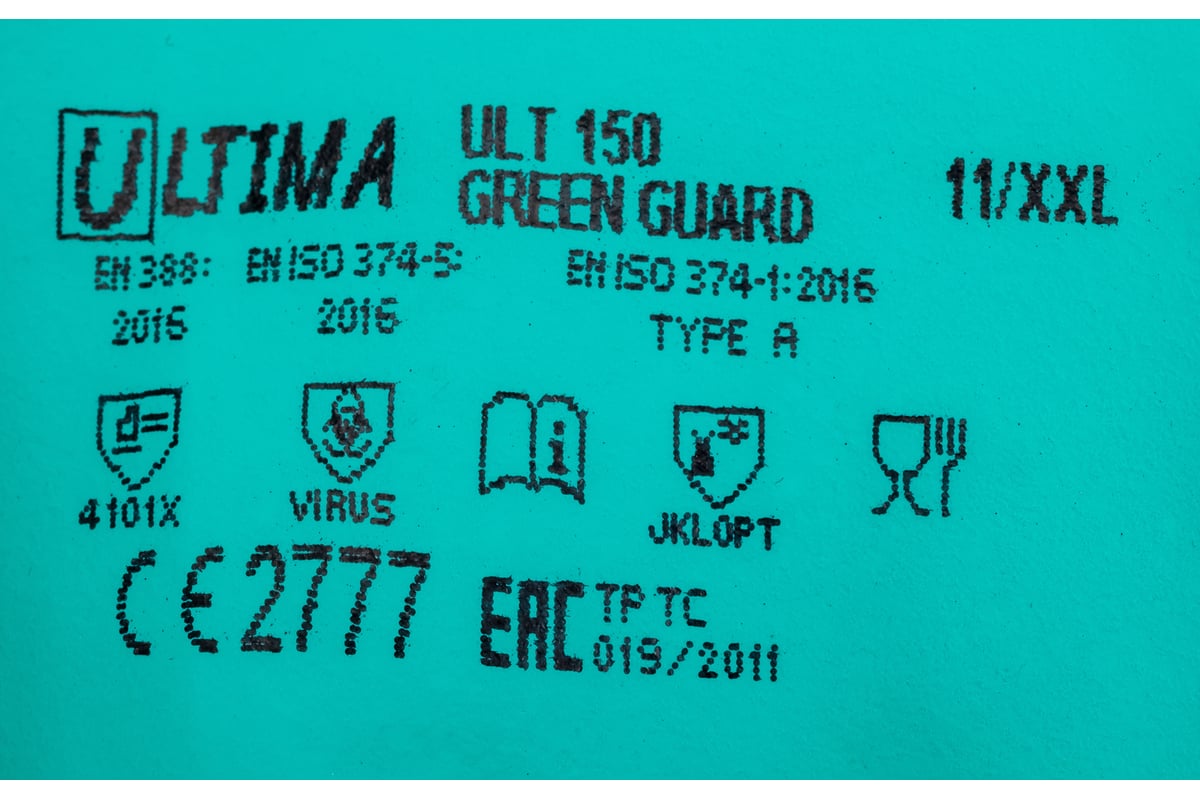 ULTIMA
ULT 150
GREEN GUARD
11/XXL
EN 388:
2016
EN ISO 374-5:
2016
EN ISO 374-1:2016
TYPE A
i
4101X
VIRUS
JKLOPT
CE 2777
EAC
TP TC
019/2011